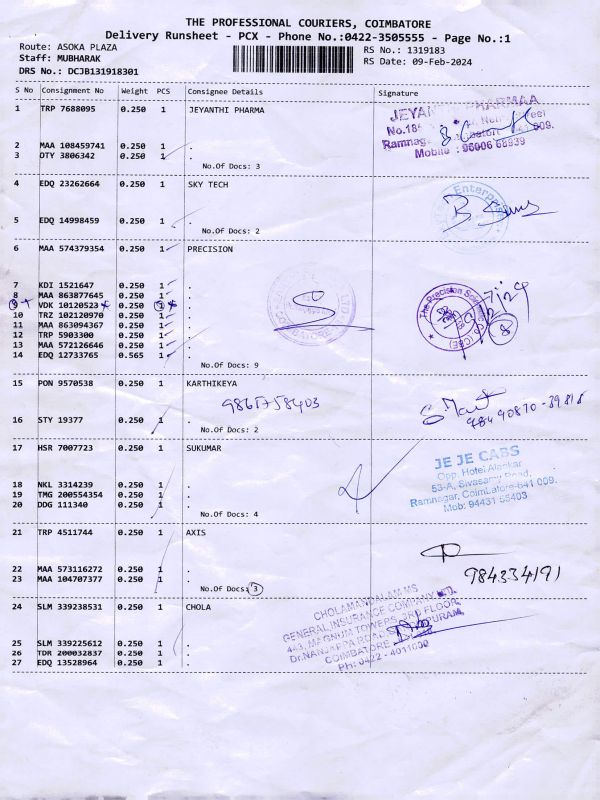 THE PROFESSIONAL COURIERS, COIMBATORE
Delivery Runsheet - PCX - Phone No.:0422-3505555 - Page No.:1
Route: ASOKA PLAZA
RS No.: 1319183
Staff: MUBHARAK
RS Date: 09-Feb-2024
DRS No.: DCJB131918301
S No Consignment No Weight PCS Consignee Details Signature
1 TRP 7688095 0.250 1 JEYANTHI PHARMA
2 MAA 108459741 0.250 1 .
3 OTY 3806342 0.250 1 .
No.Of Docs: 3
4 EDQ 23262664 0.250 1 SKY TECH
Enterprise
5 EDQ 14998459 0.250 1 .
No.Of Docs: 2
6 MAA 574379354 0.250 1 PRECISION
7 KDI 1521647 0.250 1 .
8 MAA 863877645 0.250 1 .
9 VDK 10120523 0.250 1 .
10 TRZ 102120970 0.250 1 .
11 MAA 863094367 0.250 1 .
12 TRP 5903300 0.250 1 .
13 MAA 572126646 0.250 1 .
14 EDQ 12733765 0.565 1 .
COIMBATORE
The Precision
8
No.Of Docs: 9
15 PON 9570538 0.250 1 KARTHIKEYA
9861758403
16 STY 19377 0.250 1 .
No.Of Docs: 2
17 HSR 7007723 0.250 1 SUKUMAR
JE JE CABS
Opp. Hotel Alankar
53-A, Sivasamy Road,
Ramnagar, Coimbatore-641 009.
Mob: 94431 55403
18 NKL 3314239 0.250 1 .
19 TMG 200554354 0.250 1 .
20 DDG 111340 0.250 1 .
No.Of Docs: 4
21 TRP 4511744 0.250 1 AXIS
984334191
22 MAA 573116272 0.250 1 .
23 MAA 104707377 0.250 1 .
No.Of Docs: 3
24 SLM 339238531 0.250 1 CHOLA
CHOLAMANDALAM MS
GENERAL INSURANCE COMPANY LTD.
443, MAGNUM TOWERS, 3RD FLOOR,
Dr.NANJAPPA ROAD,
COIMBATORE
Ph: 0422 - 4011000
25 SLM 339225612 0.250 1 .
26 TDR 200032837 0.250 1 .
27 EDQ 13528964 0.250 1 .